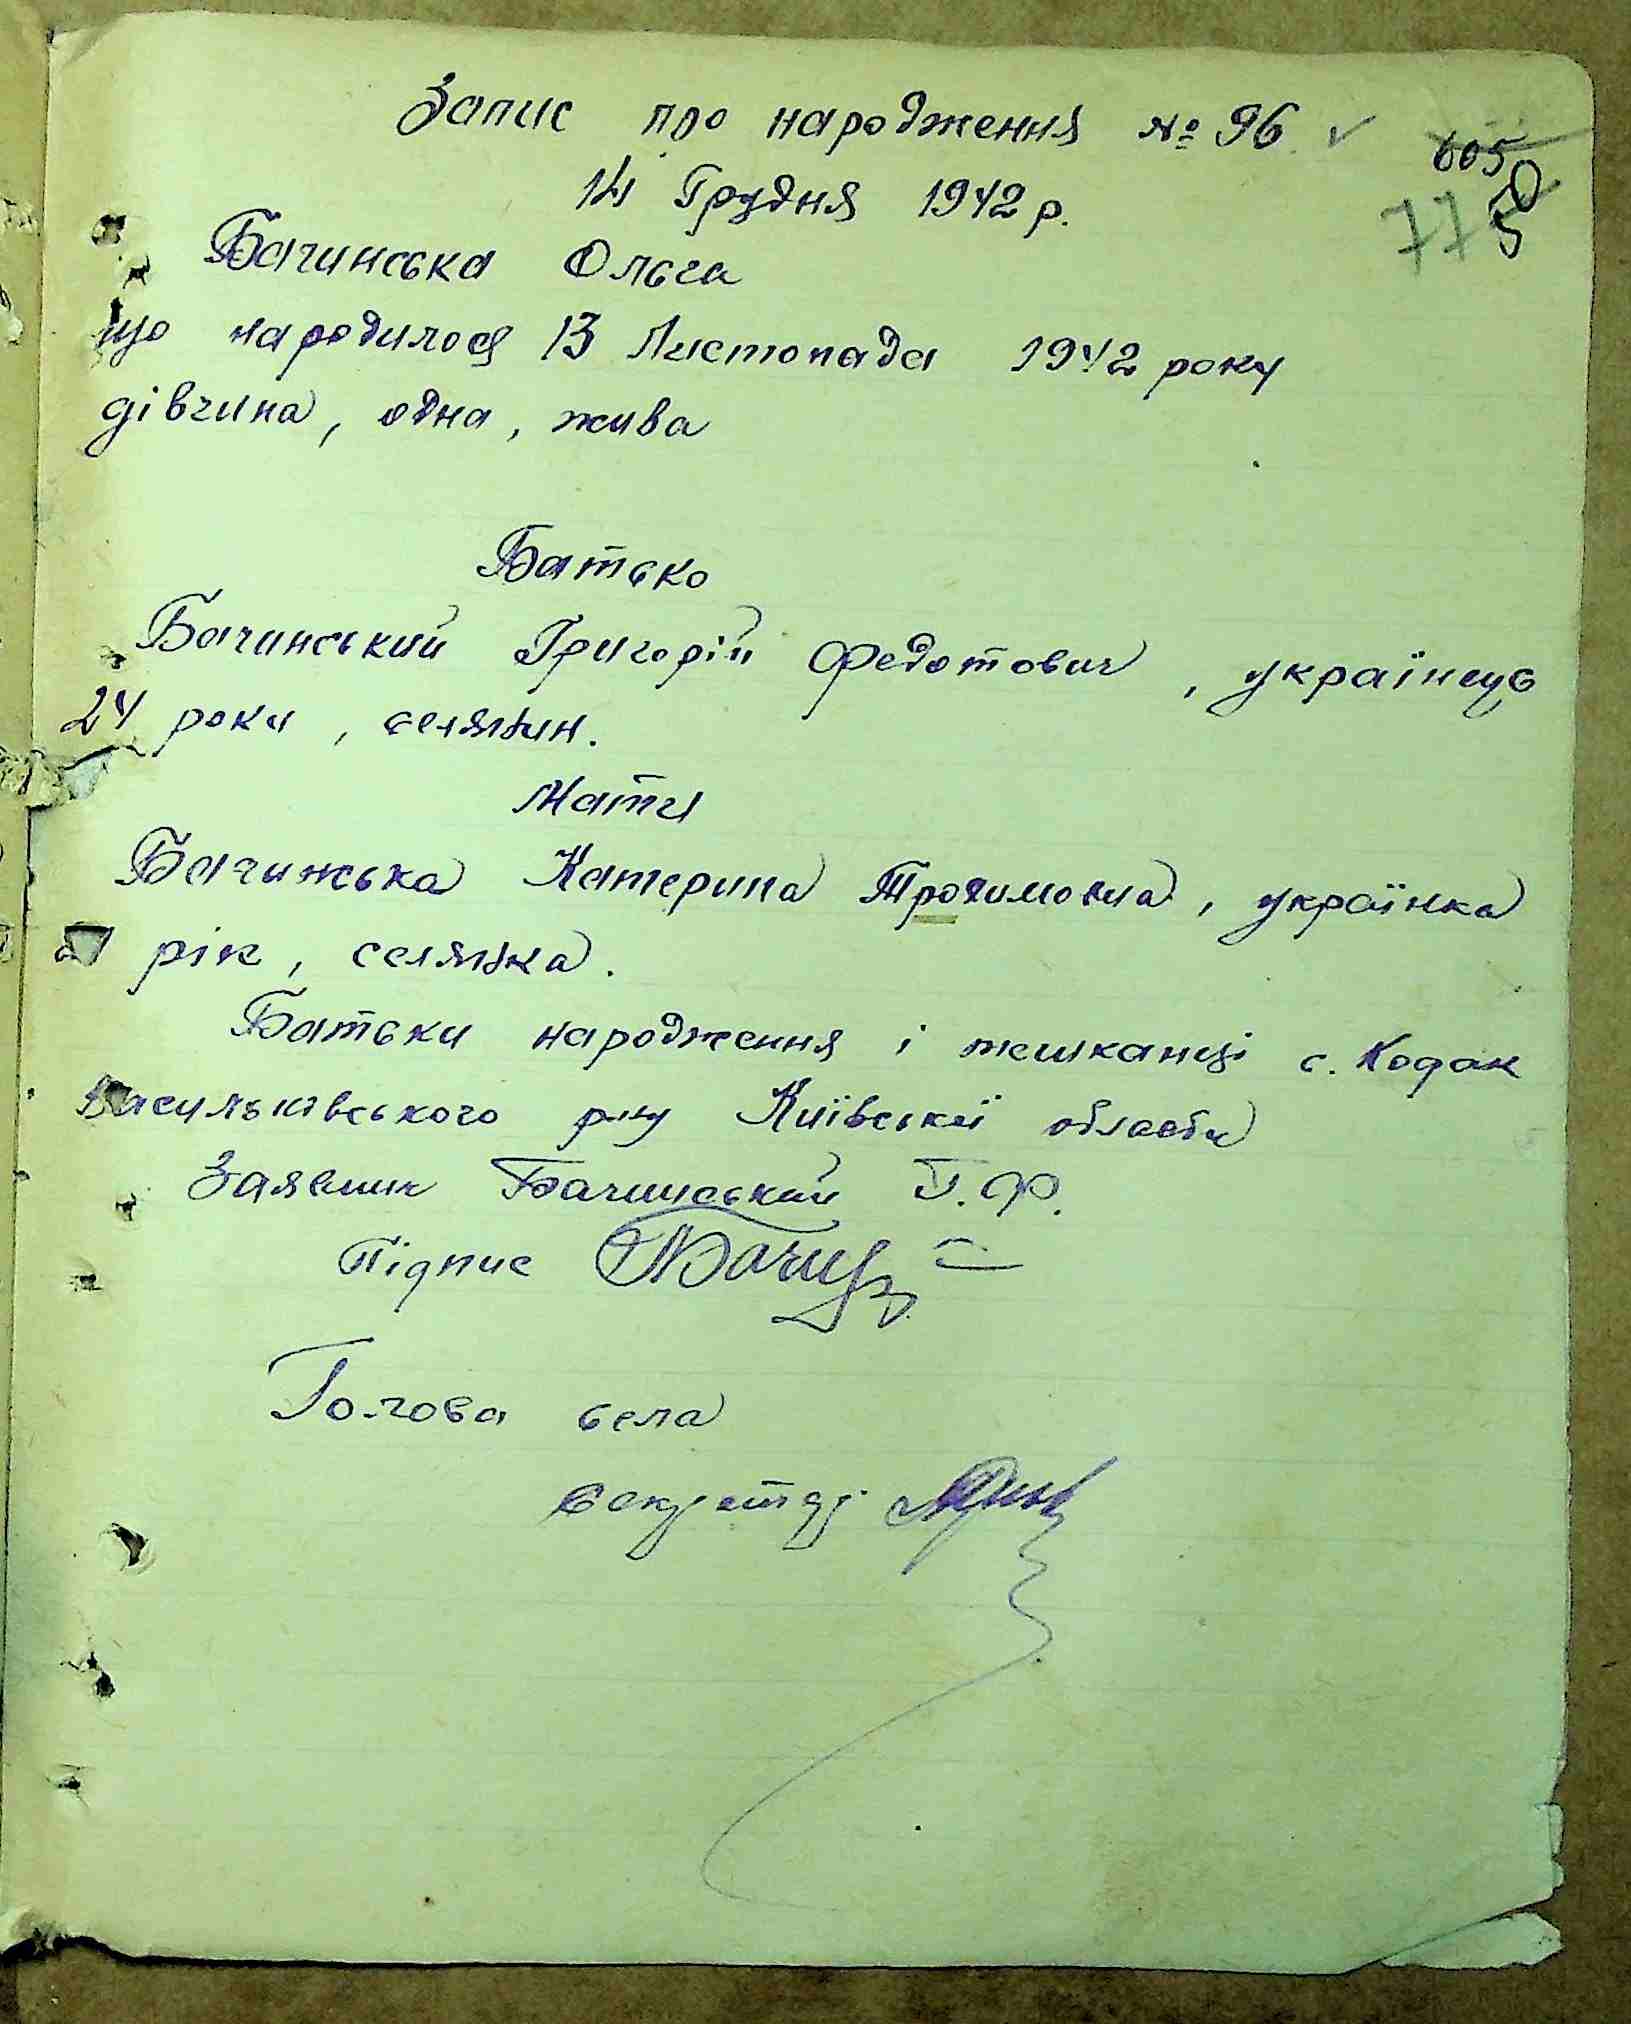 Запис про народження № 96
605
14 Грудня 1942 р.
77
50
Бачинська Ольга
що народилося 13 Листопада 1942 року
дівчина, одна, жива
Батько
Бачинський Григорій Федотович, українець
24 роки, селянин.
Мати
Бачинська Катерина Трохимовна, українка
рік, селянка.
Батьки народження і мешканці с. Кодак
Васильківського р-ну Київської області
Заявник Бачинський Г. Ф.
Підпис
Голова села
Секретар